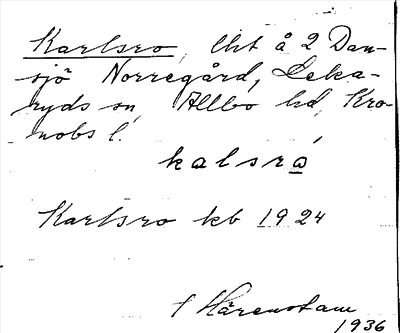 Karlsro, lht å 2 Dan-
sjö Norregård, Leka-
ryds sn, Allbo hd, Kro-
nobs l.
kalsró
Karlsro kb 1924
Härenstam
1936